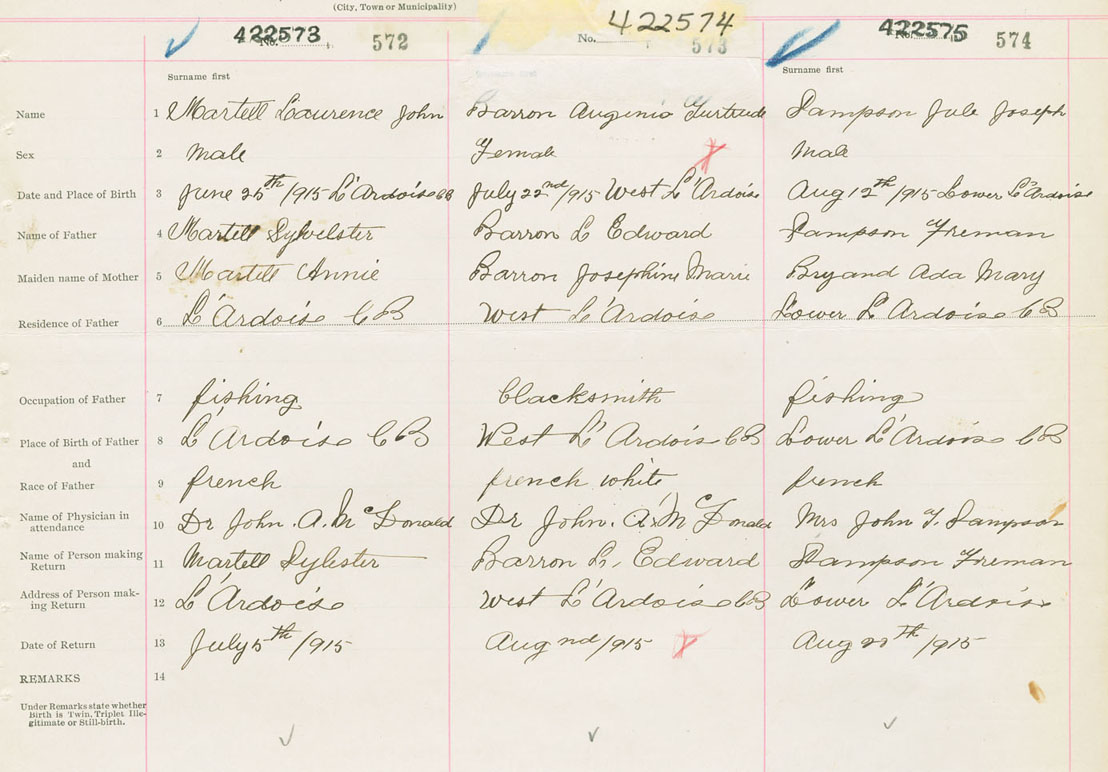 (City, Town or Municipality)
422573 422574 422575
No. 572 No. 573 No. 574
Surname first Surname first Surname first
Name 1 Martell Laurence John Barron Augenia Gurtrude Sampson Jule Joseph
Sex 2 Male Female Male
Date and Place of Birth 3 June 25th /915 L'Ardoise CB July 22nd /915 West L'Ardoise Aug 12th /915 Lower L'Ardoise
Name of Father 4 Martell Sylvelster Barron L Edward Sampson Freman
Maiden name of Mother 5 Martell Annie Barron Josephine Marie Bryand Ada Mary
Residence of Father 6 L'Ardoise CB West L'Ardoise Lower L'Ardoise CB
Occupation of Father 7 fishing blacksmith fishing
Place of Birth of Father 8 L'Ardoise CB West L'Ardoise CB Lower L'Ardoise CB
and
Race of Father 9 french french white french
Name of Physician in
attendance 10 Dr John. A. McDonald Dr John. A. McDonald Mrs John T. Sampson
Name of Person making
Return 11 Martell Sylester Barron L. Edward Sampson Freman
Address of Person mak-
ing Return 12 L'Ardoise West L'Ardoise CB Lower L'Ardoise
Date of Return 13 July 5th /915 Aug nd /915 Aug th /915
REMARKS 14
Under Remarks state whether
Birth is Twin, Triplet Ille-
gitimate or Still-birth.